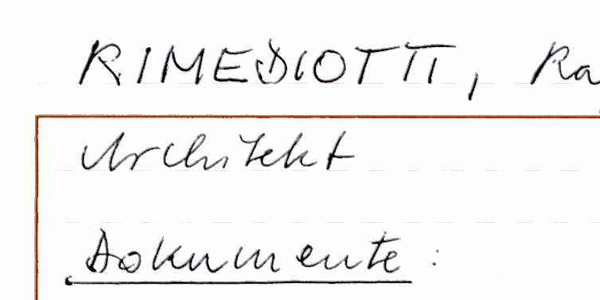 RIMEDIOTTI, Ra
Architekt
Dokumente: